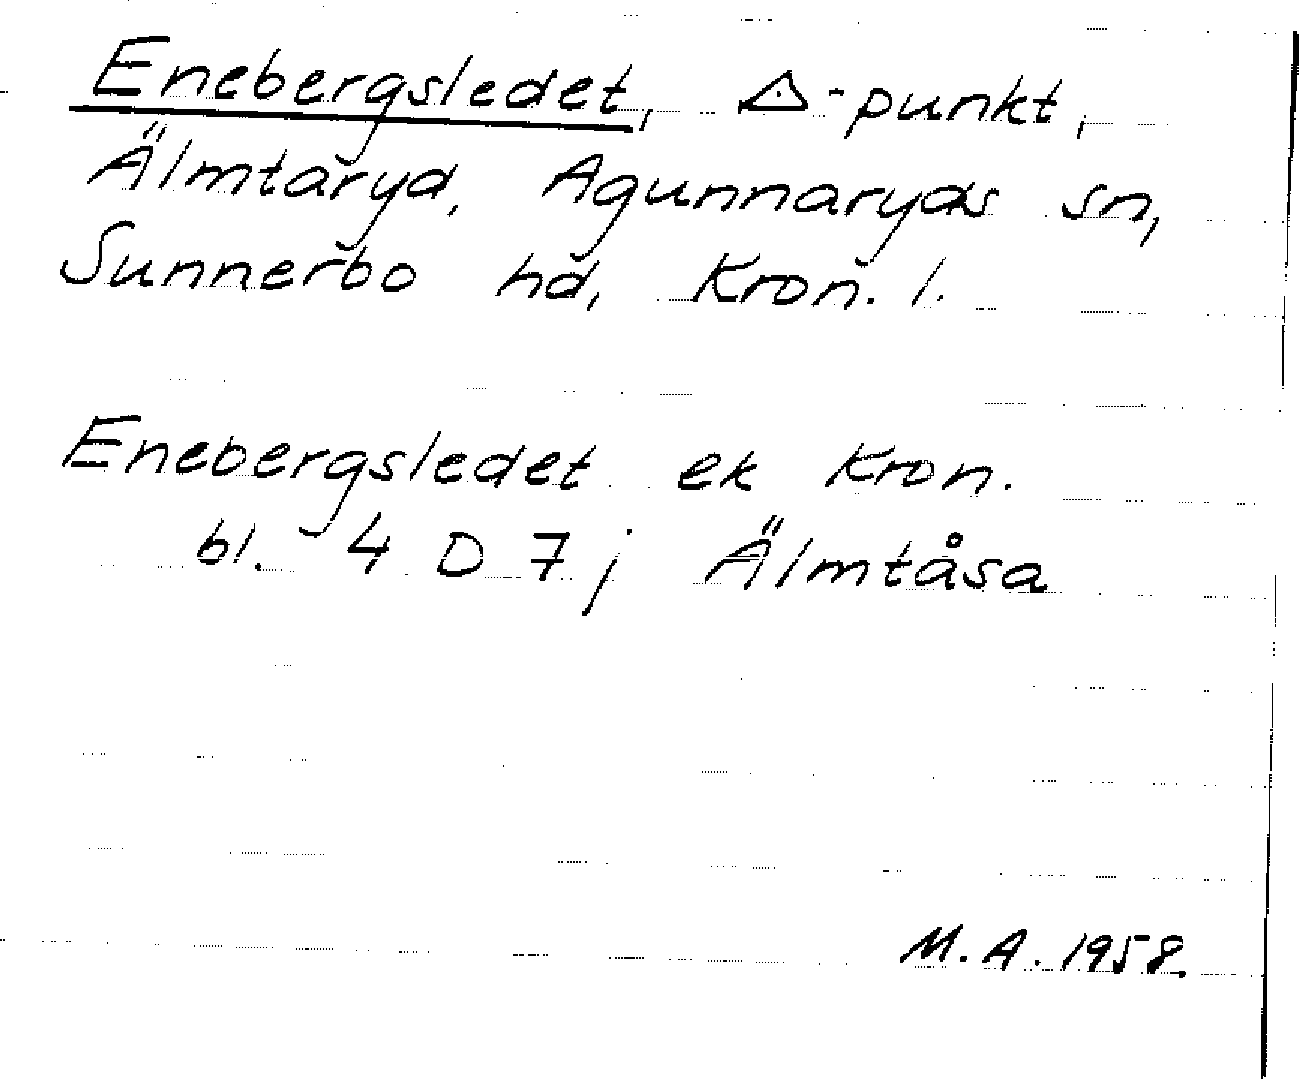 Enebergsledet, △-punkt,
Älmtaryd, Agunnaryds sn,
Sunnerbo hd, Kron. l.
Enebergsledet ek Kron.
bl. 4 D 7 j Älmtåsa
M. A. 1958.